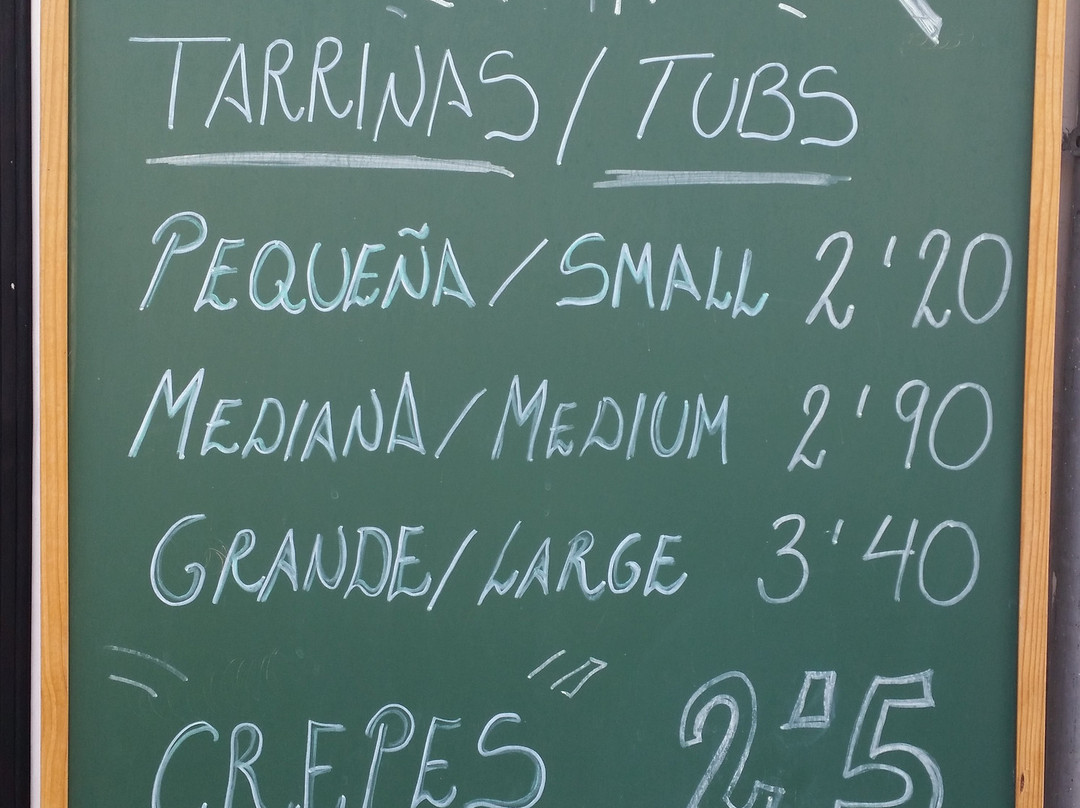 TARRINAS / TUBS
PEQUEÑA / SMALL 2'20
MEDIANA / MEDIUM 2'90
GRANDE / LARGE 3'40
CREPES 2'5